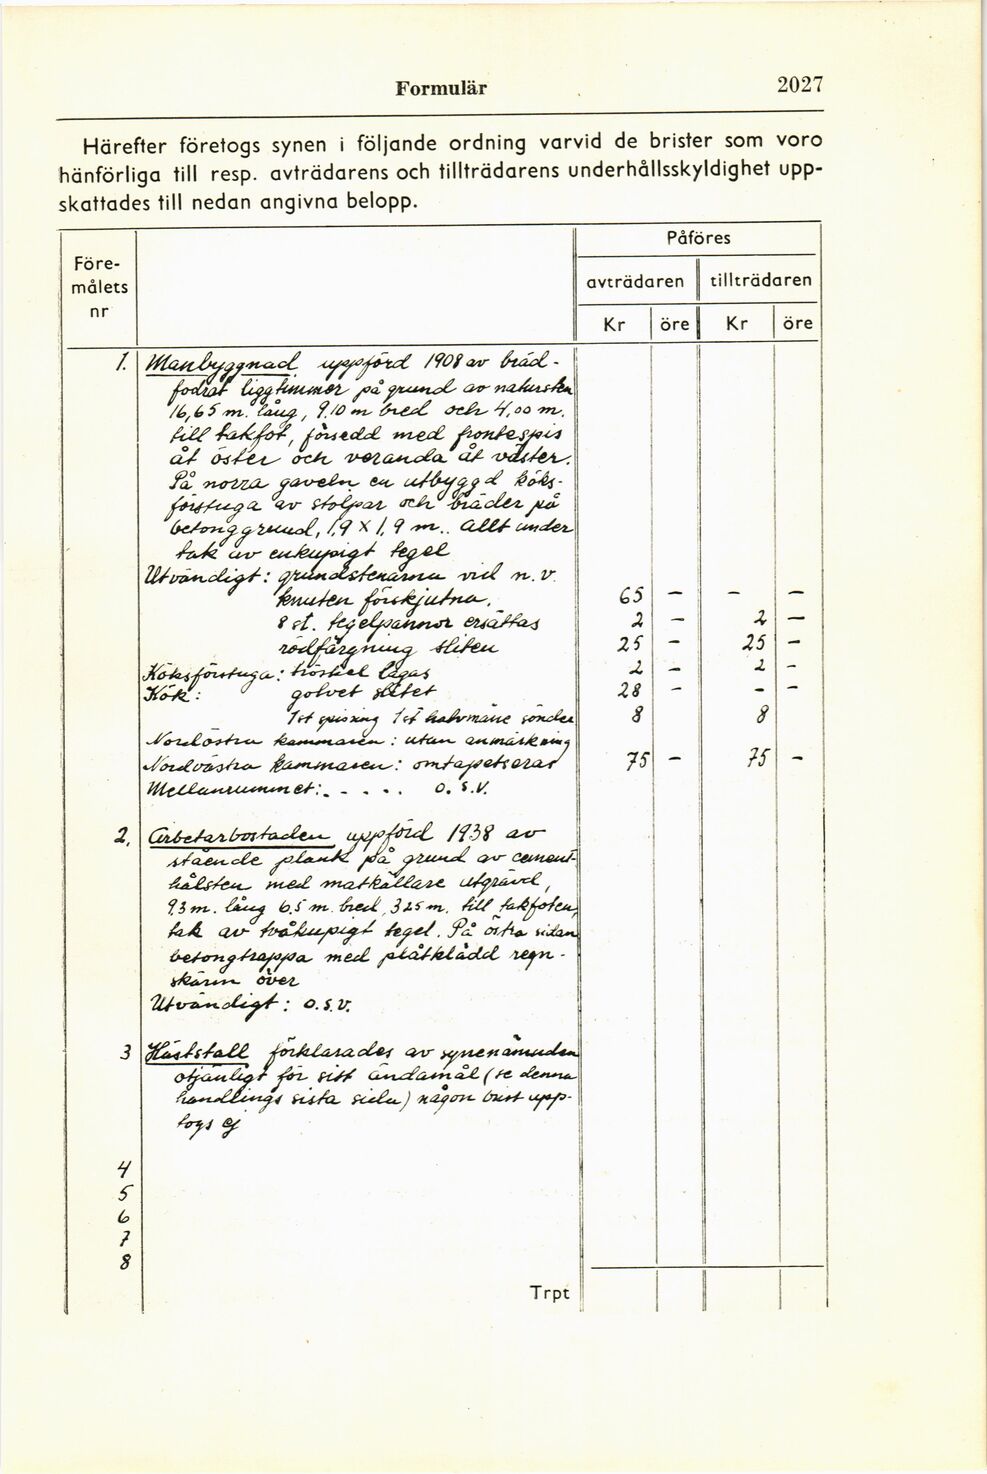 Formulär 2027
Härefter företogs synen i följande ordning varvid de brister som voro
hänförliga till resp. avträdarens och tillträdarens underhållsskyldighet upp-
skattades till nedan angivna belopp.
Före-
målets
nr
Påföres
avträdaren tillträdaren
Kr öre Kr öre
1. Manbyggnad uppförd 1908 av bräd-
fodrat liggtimmer på grund av natursten
16,65 m. lång, 9.10 m bred och 4,00 m.
till takfot, försedd med frontespis
åt öster och veranda åt väster.
På norra gaveln en utbyggd köks-
förstuga av stolpar och bräder på
betonggrund, 1,9 X 1,9 m.. Allt under
tak av enkupigt tegel
Utvändigt: grundstenarna vid n.v.
knuten förskjutna. 65 — — —
8 st. tegelpannor ersättas 2 — 2 —
rödfärgning sliten 25 — 25 —
Köksförstuga: tröskel lagas 2 — 2 —
Kök: golvet slitet 28 — — —
1st spisring 1st halvmåne sönder 8 8
Nordöstra kammaren: utan anmärkning
Nordvästra kammaren: omtapetseras 75 — 75 —
Mellanrummet: - - - - o.s.v.
2. Arbetarbostaden uppförd 1938 av
stående plank på grund av cement-
hålsten med matkällare utgrävd,
9.3 m. lång 6.5 m bred, 3.25 m. till takfoten,
tak av tvåkupigt tegel. På östra sidan
betongtrappa med plåtklädd regn-
skärm över
Utvändigt: o.s.v.
3 Häststall förklarades av synenämnden
otjänligt för sitt ändamål (se denna
handlings sista sida) någon brist upp-
togs ej
4
5
6
7
8
Trpt